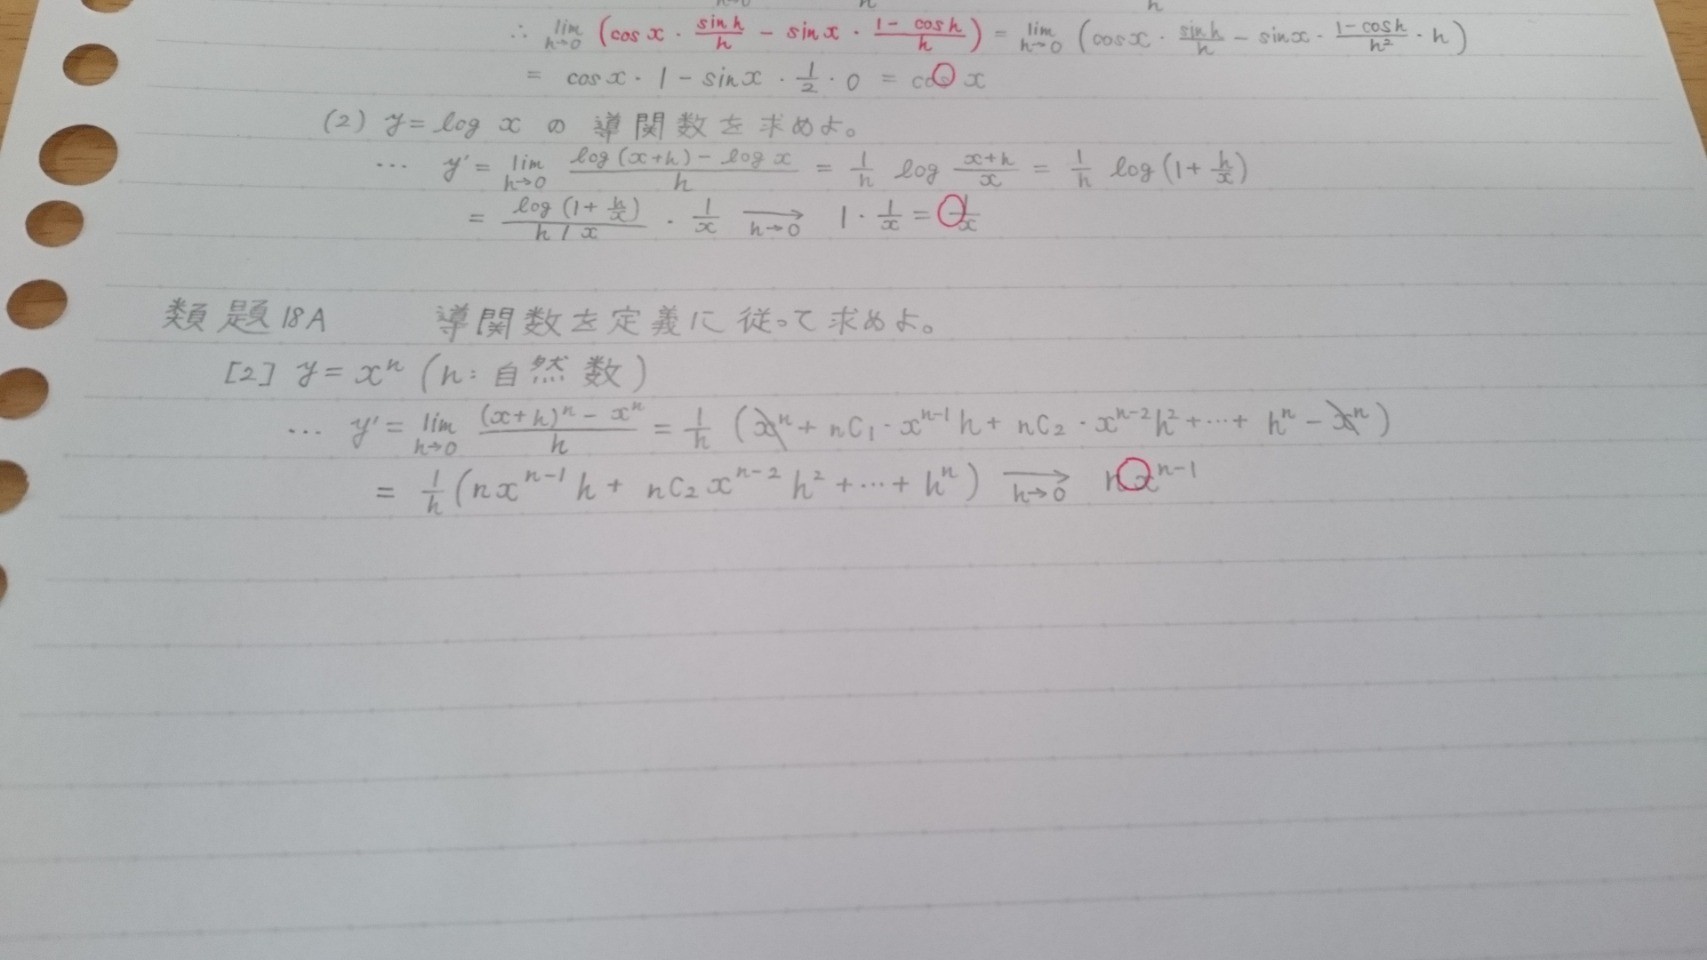 ∴ lim h→0 (cos x · sin h/h − sin x · 1−cos h/h) = lim h→0 (cos x · sin h/h − sin x · 1−cos h/h² · h)
= cos x · 1 − sin x · 1/2 · 0 = cos x
(2) y = log x の 導関数を求めよ。
… y' = lim h→0 log(x+h) − log x/h = 1/h log x+h/x = 1/h log(1+h/x)
= log(1+h/x)/h/x · 1/x →h→0 1 · 1/x = 1/x
類題18A 導関数を定義に従って求めよ。
[2] y = xⁿ (n: 自然数)
… y' = lim h→0 (x+h)ⁿ − xⁿ/h = 1/h (xⁿ + nC₁ · xⁿ⁻¹h + nC₂ · xⁿ⁻²h² + … + hⁿ − xⁿ)
= 1/h (nxⁿ⁻¹h + nC₂xⁿ⁻²h² + … + hⁿ) →h→0 nxⁿ⁻¹